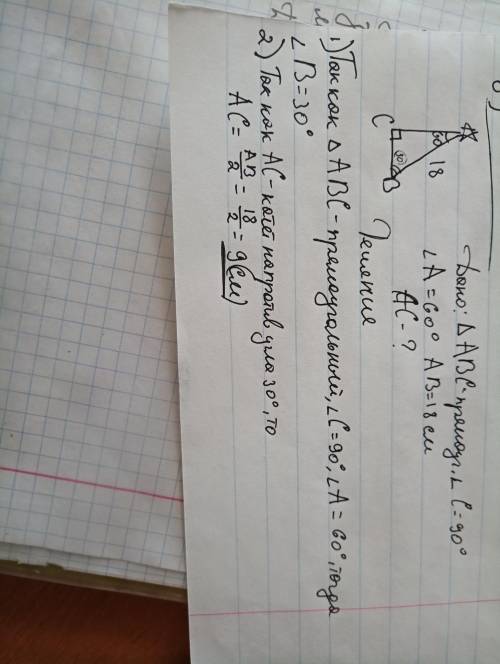 Дано: △ABC-прямоуг, ∠C=90°
∠A=60° AB=18 см
AC-?
A
60
18
C
30
B
Решение
1) Так как △ABC-прямоугольный, ∠C=90°, ∠A=60°, тогда
∠B=30°
2) Так как AC-катет напротив угла 30°, то
AC= AB/2 = 18/2 = 9(см)